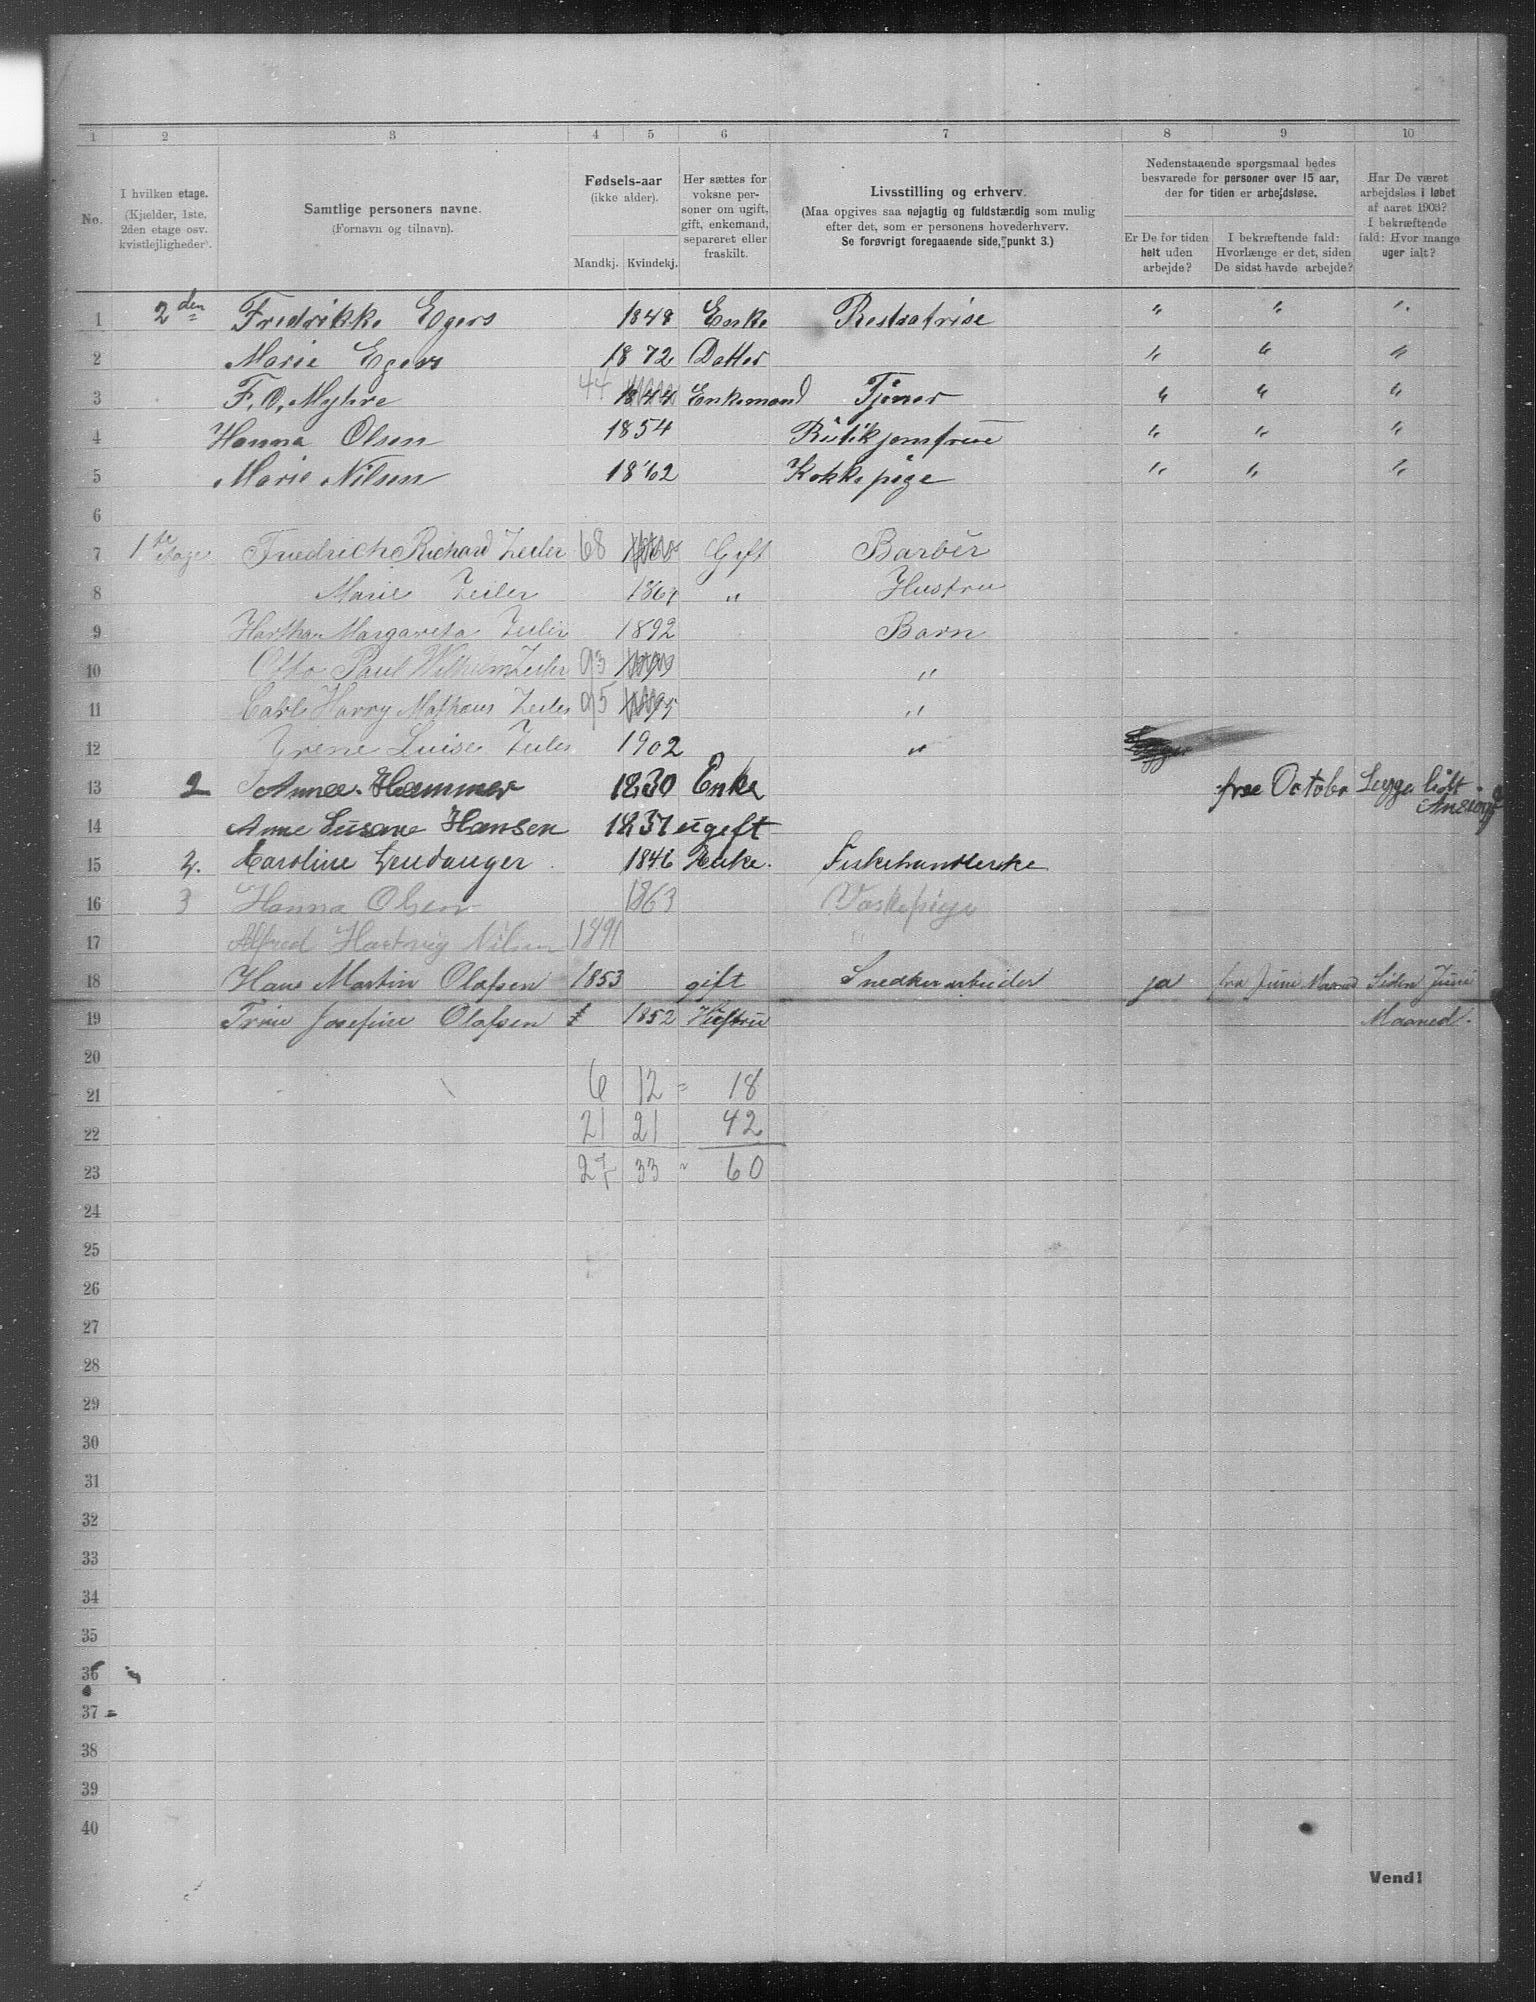 1 2 3 4 5 6 7 8 9 10
No.
I hvilken etage.
(Kjelder, 1ste,
2den etage osv.
kvistlejligheder).
Samtlige personers navne.
(Fornavn og tilnavn).
Fødsels-aar
(ikke alder).
Mandkj. Kvindekj.
Her sættes for
voksne per-
soner om ugift,
gift, enkemand,
separeret eller
fraskilt.
Livsstilling og erhverv.
(Maa opgives saa nøjagtig og fuldstændig som mulig
efter det, som er personens hovederhverv.
Se forøvrigt foregaaende side, punkt 3.)
Nedenstaaende spørgsmaal bedes
besvarede for personer over 15 aar,
der for tiden er arbejdsløse.
Er De for tiden
helt uden
arbejde?
I bekræftende fald:
Hvorlænge er det, siden
De sidst havde arbejde?
Har De været
arbejdsløs i løbet
af aaret 1903?
I bekræftende
fald: Hvor mange
uger ialt?
1 2den Fredrikke Egers 1848 Enke " " "
2 Marie Egers 1872 Datter " " "
3 F. O. Myhre 44 1844 Enkemand Tjener " " "
4 Hanna Olsen 1854 Butikjomfrue " " "
5 Marie Nilsen 1862 Kokkepige " " "
6
7 1ste Etage Friedrich Richard Zeiler 68 Gift Barbér
8 Marie Zeiler " Hustru
9 Margareta Zeiler 1892 Barn
10 Otto Paul Wilhelm Zeiler 93 "
11 Carl Harry Zeiler 95 "
12 Yrene Luise Zeiler 1902 "
13 2 Anna Hammer 1830 Enke October
14 Anne Susane Hansen 1837 ugeft
15 2. Caroline 1846 Enke. Fiskehandlerske
16 3 Hanna Olsen 1863 Vaskepige
17 Alfred Hartvig Nilsen 1891 "
18 Hans Martin Olafsen 1853 gift Snedkerarbeider ja fra Juni Maaned Siden Juni
19 Josefine Olafsen 1852 Hustru Maaned.
20
21 6 12 = 18
22 21 21 42
23 27 33 " 60
24
25
26
27
28
29
30
31
32
33
34
35
36
37
38
39
40
Vend!